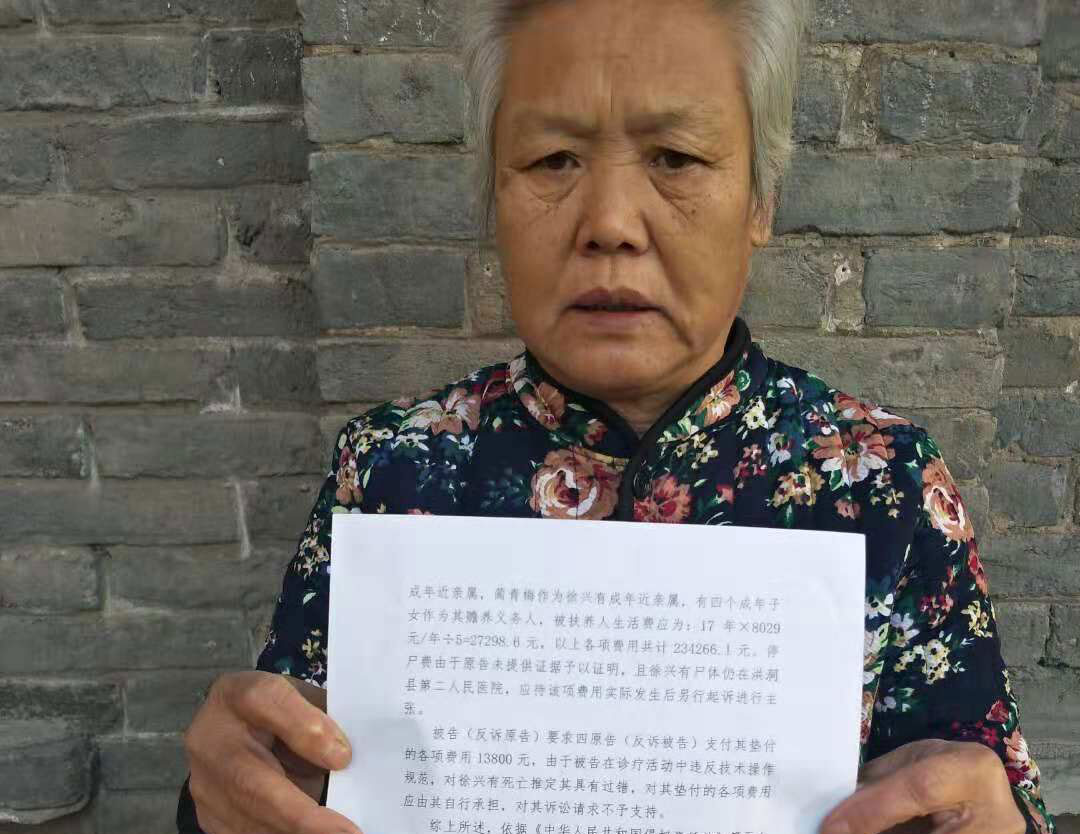 成年近亲属，蔺青梅作为徐兴有成年近亲属，有四个成年子
女作为其赡养义务人，被扶养人生活费应为：17 年×8029
元/年÷5=27298.6 元，以上各项费用共计 234266.1 元。停
尸费由于原告未提供证据予以证明，且徐兴有尸体仍在洪洞
县第二人民医院，应待该项费用实际发生后另行起诉进行主
张。
被告（反诉原告）要求四原告（反诉被告）支付其垫付
的各项费用 13800 元，由于被告在诊疗活动中违反技术操作
规范，对徐兴有死亡推定其具有过错，对其垫付的各项费用
应由其自行承担，对其诉讼请求不予支持。
综上所述，依据《中华人民共和国侵权责任法》第